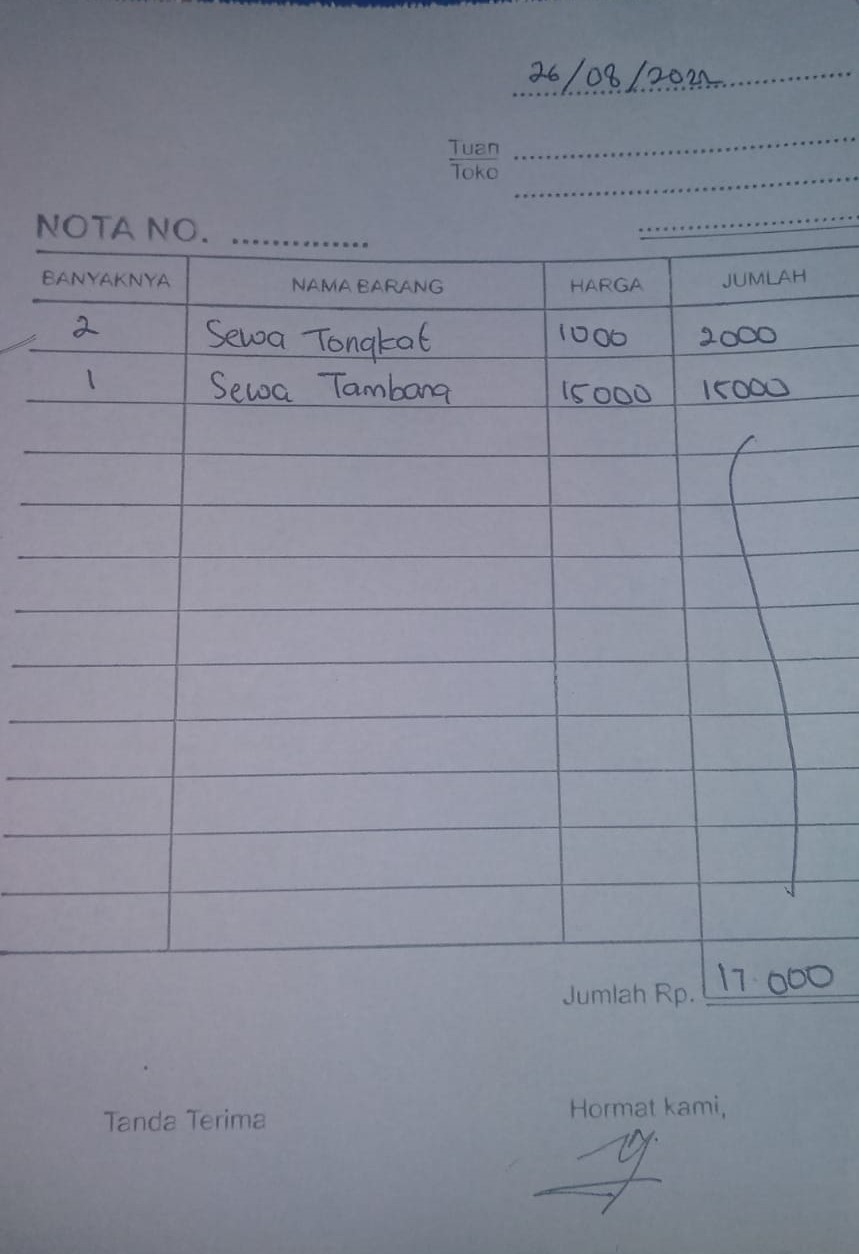 26/08/2022
Tuan
Toko
NOTA NO.
BANYAKNYA NAMA BARANG HARGA JUMLAH
2 Sewa Tongkat 1000 2000
1 Sewa Tambang 15000 15000
Jumlah Rp. 17.000
Tanda Terima Hormat kami,